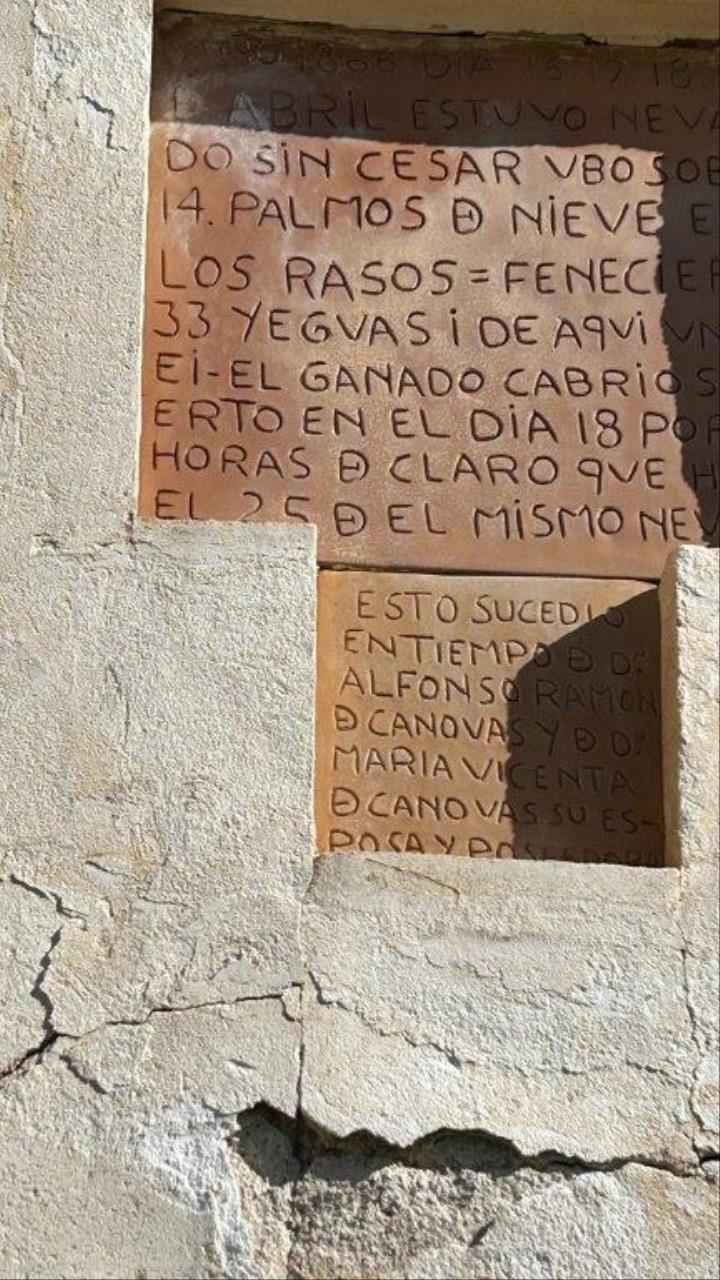 1866 DIA 16 17 18
ABRIL ESTUVO NEVA
DO SIN CESAR VBO SOB
14. PALMOS Ð NIEVE E
LOS RASOS = FENECIER
33 YEGVAS i DE AQVI VN
Ei-EL GANADO CABRIO S
ERTO EN EL DIA 18 POR
HORAS Ð CLARO QVE H
EL 25 Ð EL MISMO NEV
ESTO SUCEDIO
EN TIEMPO Ð Dⁿ
ALFONSO RAMON
Ð CANOVAS Y Ð Dª
MARIA VICENTA
Ð CANOVAS SU ES-
POSA Y POSEEDORA